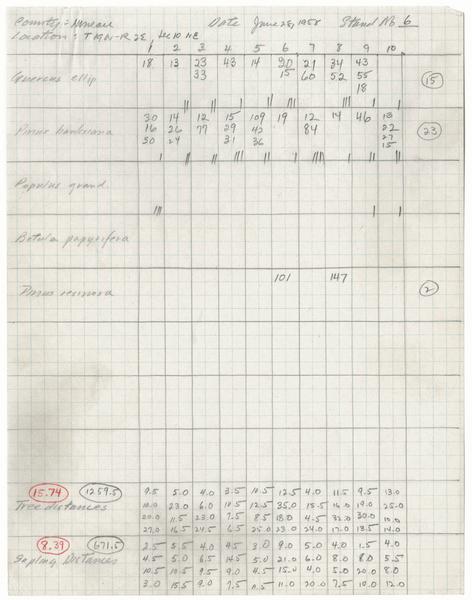 County - Juneau Date June 25, 1958 Stand No 6
Location: T19N-R2E, Sec 10 NE
1 2 3 4 5 6 7 8 9 10
Quercus ellip 18 13 23 43 14 20 21 34 43
33 15 60 52 55
18
15
Pinus banksiana 30 14 12 15 109 19 12 14 46 13
16 26 77 29 42 84 22
50 24 31 36 27
15
23
Populus grand.
Betula papyrifera
Pinus resinosa 101 147
2
15.74 1259.5 9.5 5.0 4.0 3.5 10.5 12.5 4.0 11.5 9.5 13.0
Tree distances 10.0 23.0 6.0 10.5 12.5 35.0 15.5 16.0 19.0 25.0
20.0 11.5 23.0 7.5 8.5 18.0 4.5 32.0 30.0 10.0
27.0 16.5 24.5 6.5 25.0 23.0 24.0 17.0 13.5 14.0
8.39 671.5 2.5 5.5 4.0 4.5 3.0 9.0 5.0 4.0 1.5 4.0
Sapling Distances 4.5 5.0 6.5 14.5 5.0 21.0 6.0 8.0 8.0 5.5
10.5 10.5 9.5 9.0 4.5 15.0 4.0 5.0 20.0 8.0
3.0 15.5 9.0 7.5 11.5 11.0 20.0 7.5 10.0 12.0